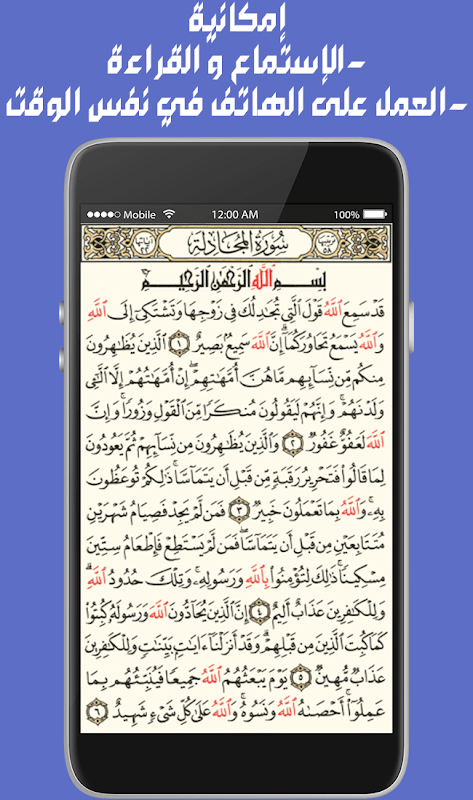 إمكانية
-الإستماع و القراءة
-العمل على الهاتف في نفس الوقت
Mobile 12:00 AM 100%
ترتيبها ٥٨ سُورَةُ المُجَادلَة آياتها ٢٢
بِسْمِ ٱللَّهِ ٱلرَّحْمَٰنِ ٱلرَّحِيمِ
قَدْ سَمِعَ ٱللَّهُ قَوْلَ ٱلَّتِى تُجَٰدِلُكَ فِى زَوْجِهَا وَتَشْتَكِىٓ إِلَى ٱللَّهِ
وَٱللَّهُ يَسْمَعُ تَحَاوُرَكُمَآ إِنَّ ٱللَّهَ سَمِيعٌۢ بَصِيرٌ ١ ٱلَّذِينَ يُظَٰهِرُونَ
مِنكُم مِّن نِّسَآئِهِم مَّا هُنَّ أُمَّهَٰتِهِمْ إِنْ أُمَّهَٰتُهُمْ إِلَّا ٱلَّٰٓـِٔى
وَلَدْنَهُمْ وَإِنَّهُمْ لَيَقُولُونَ مُنكَرًا مِّنَ ٱلْقَوْلِ وَزُورًا وَإِنَّ
ٱللَّهَ لَعَفُوٌّ غَفُورٌ ٢ وَٱلَّذِينَ يُظَٰهِرُونَ مِن نِّسَآئِهِمْ ثُمَّ يَعُودُونَ
لِمَا قَالُوا۟ فَتَحْرِيرُ رَقَبَةٍ مِّن قَبْلِ أَن يَتَمَآسَّا ذَٰلِكُمْ تُوعَظُونَ
بِهِۦ وَٱللَّهُ بِمَا تَعْمَلُونَ خَبِيرٌ ٣ فَمَن لَّمْ يَجِدْ فَصِيَامُ شَهْرَيْنِ
مُتَتَابِعَيْنِ مِن قَبْلِ أَن يَتَمَآسَّا فَمَن لَّمْ يَسْتَطِعْ فَإِطْعَامُ سِتِّينَ
مِسْكِينًا ذَٰلِكَ لِتُؤْمِنُوا۟ بِٱللَّهِ وَرَسُولِهِۦ وَتِلْكَ حُدُودُ ٱللَّهِ
وَلِلْكَٰفِرِينَ عَذَابٌ أَلِيمٌ ٤ إِنَّ ٱلَّذِينَ يُحَآدُّونَ ٱللَّهَ وَرَسُولَهُۥ كُبِتُوا۟
كَمَا كُبِتَ ٱلَّذِينَ مِن قَبْلِهِمْ وَقَدْ أَنزَلْنَآ ءَايَٰتٍۭ بَيِّنَٰتٍ وَلِلْكَٰفِرِينَ
عَذَابٌ مُّهِينٌ ٥ يَوْمَ يَبْعَثُهُمُ ٱللَّهُ جَمِيعًا فَيُنَبِّئُهُم بِمَا
عَمِلُوٓا۟ أَحْصَىٰهُ ٱللَّهُ وَنَسُوهُ وَٱللَّهُ عَلَىٰ كُلِّ شَىْءٍ شَهِيدٌ ٦